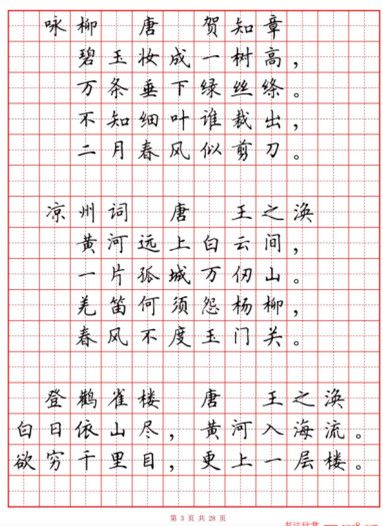 咏柳 唐 贺知章
碧玉妆成一树高，
万条垂下绿丝绦。
不知细叶谁裁出，
二月春风似剪刀。
凉州词 唐 王之涣
黄河远上白云间，
一片孤城万仞山。
羌笛何须怨杨柳，
春风不度玉门关。
登鹳雀楼 唐 王之涣
白日依山尽，黄河入海流。
欲穷千里目，更上一层楼。
第 3 页 共 28 页